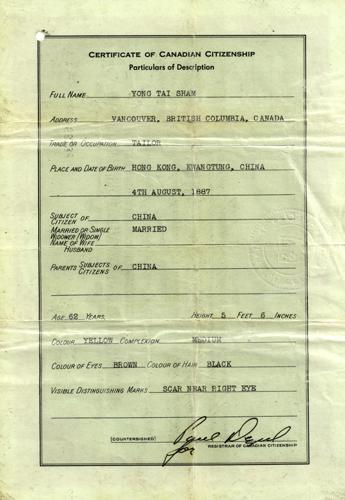 CERTIFICATE OF CANADIAN CITIZENSHIP
PARTICULARS OF DESCRIPTION
FULL NAME YONG TAI SHAM
ADDRESS VANCOUVER, BRITISH COLUMBIA, CANADA
TRADE OR OCCUPATION TAILOR
PLACE AND DATE OF BIRTH HONG KONG, KWANGTUNG, CHINA
4TH AUGUST, 1887
SUBJECT OF CHINA
CITIZEN
MARRIED OR SINGLE MARRIED
WIDOWER (WIDOW)
NAME OF WIFE
HUSBAND
PARENTS SUBJECTS OF CHINA
CITIZENS
AGE 62 YEARS. HEIGHT 5 FEET 6 INCHES
COLOUR YELLOW COMPLEXION MEDIUM
COLOUR OF EYES BROWN COLOUR OF HAIR BLACK
VISIBLE DISTINGUISHING MARKS SCAR NEAR RIGHT EYE
(COUNTERSIGNED) for REGISTRAR OF CANADIAN CITIZENSHIP